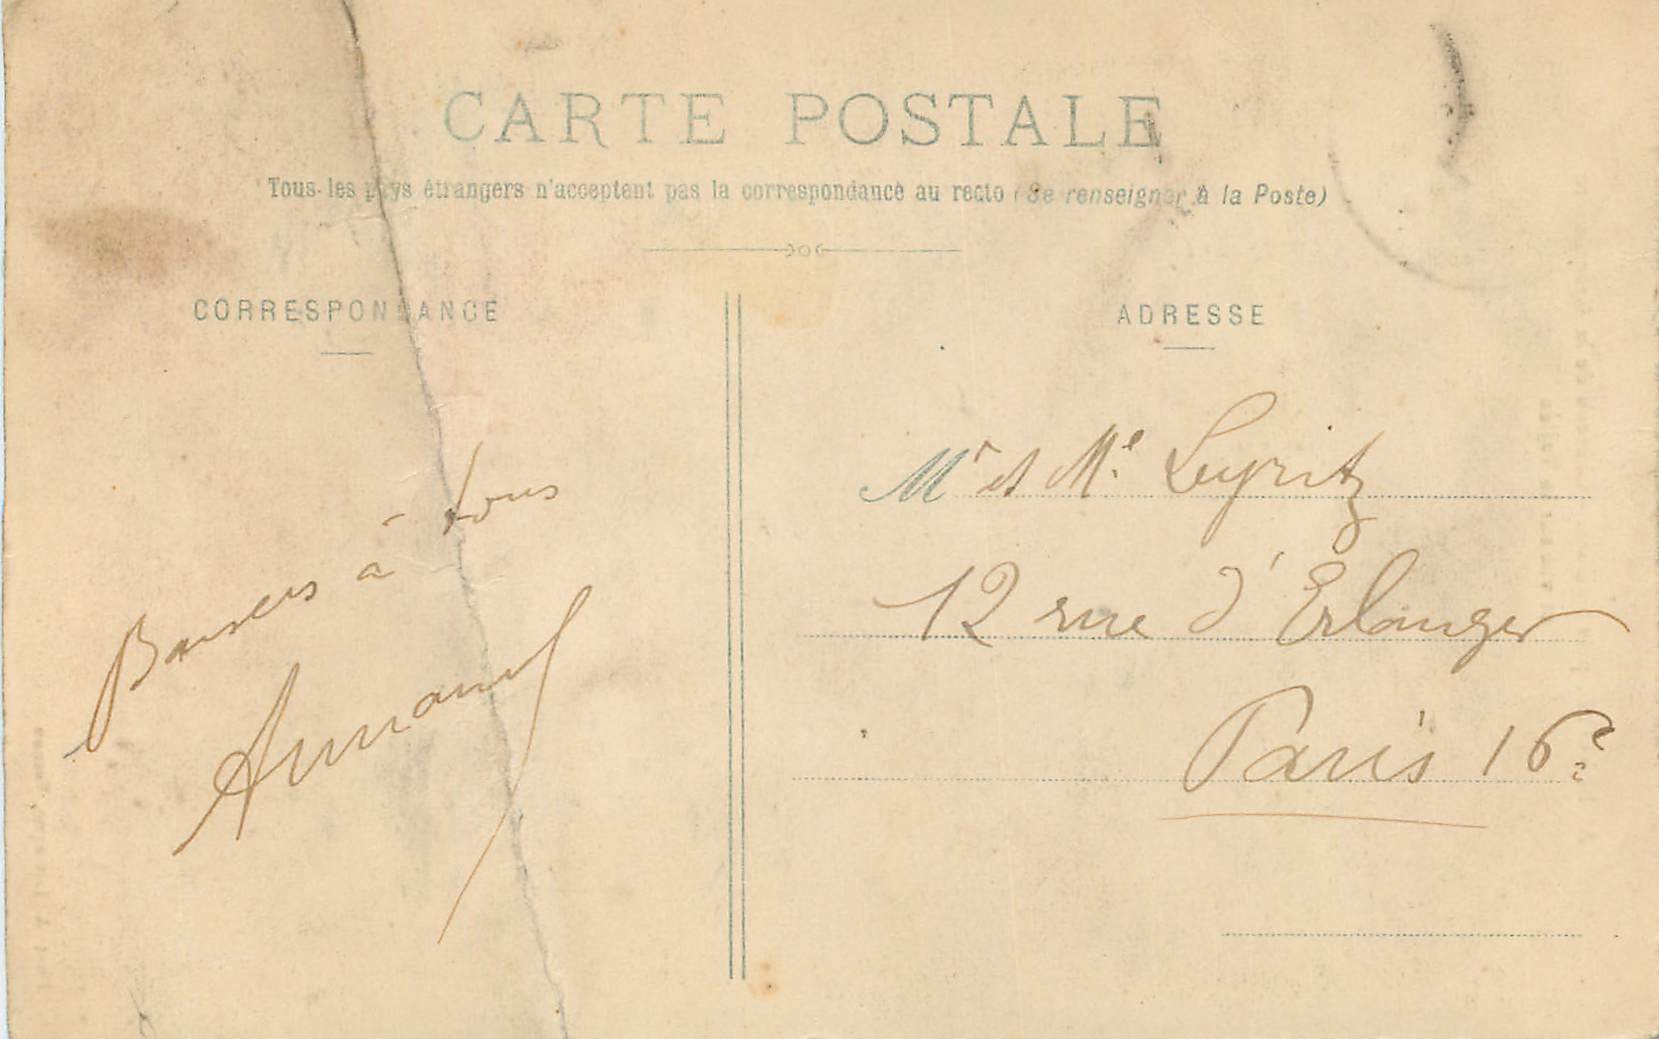 CARTE POSTALE
Tous les pays étrangers n'acceptent pas la correspondance au recto (Se renseigner à la Poste)
CORRESPONDANCE
Baisers à tous
Armand
ADRESSE
Mr et Me Leyritz
12 rue d'Erlanger
Paris 16e